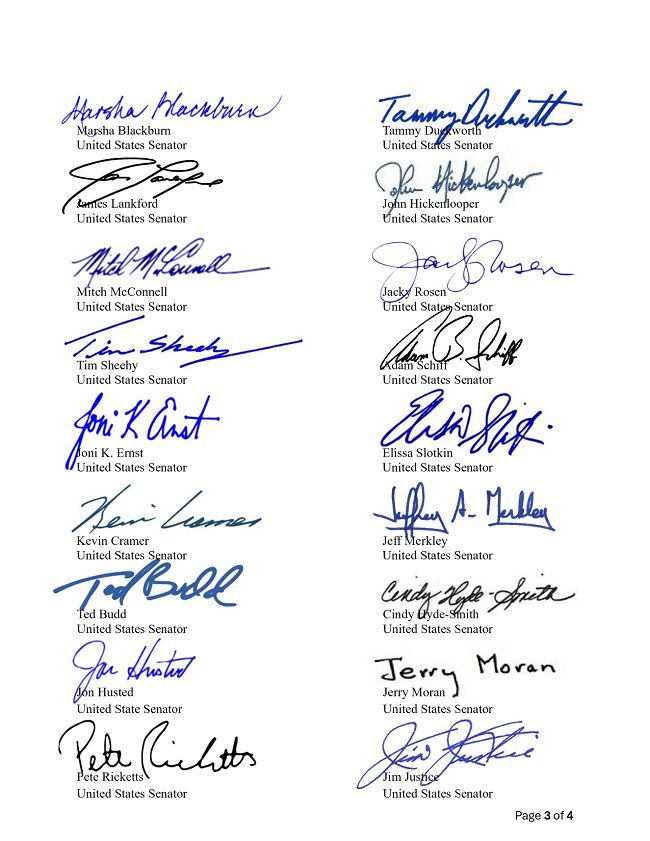 Marsha Blackburn
Marsha Blackburn
United States Senator
Tammy Duckworth
Tammy Duckworth
United States Senator
James Lankford
United States Senator
John Hickenlooper
John Hickenlooper
United States Senator
Mitch McConnell
Mitch McConnell
United States Senator
Jacky Rosen
Jacky Rosen
United States Senator
Tim Sheehy
Tim Sheehy
United States Senator
Adam B. Schiff
Adam Schiff
United States Senator
Joni K Ernst
Joni K. Ernst
United States Senator
Elissa Slotkin
Elissa Slotkin
United States Senator
Kevin Cramer
Kevin Cramer
United States Senator
Jeffrey A. Merkley
Jeff Merkley
United States Senator
Ted Budd
Ted Budd
United States Senator
Cindy Hyde-Smith
Cindy Hyde-Smith
United States Senator
Jon Husted
Jon Husted
United State Senator
Jerry Moran
Jerry Moran
United States Senator
Pete Ricketts
Pete Ricketts
United States Senator
Jim Justice
Jim Justice
United States Senator
Page 3 of 4